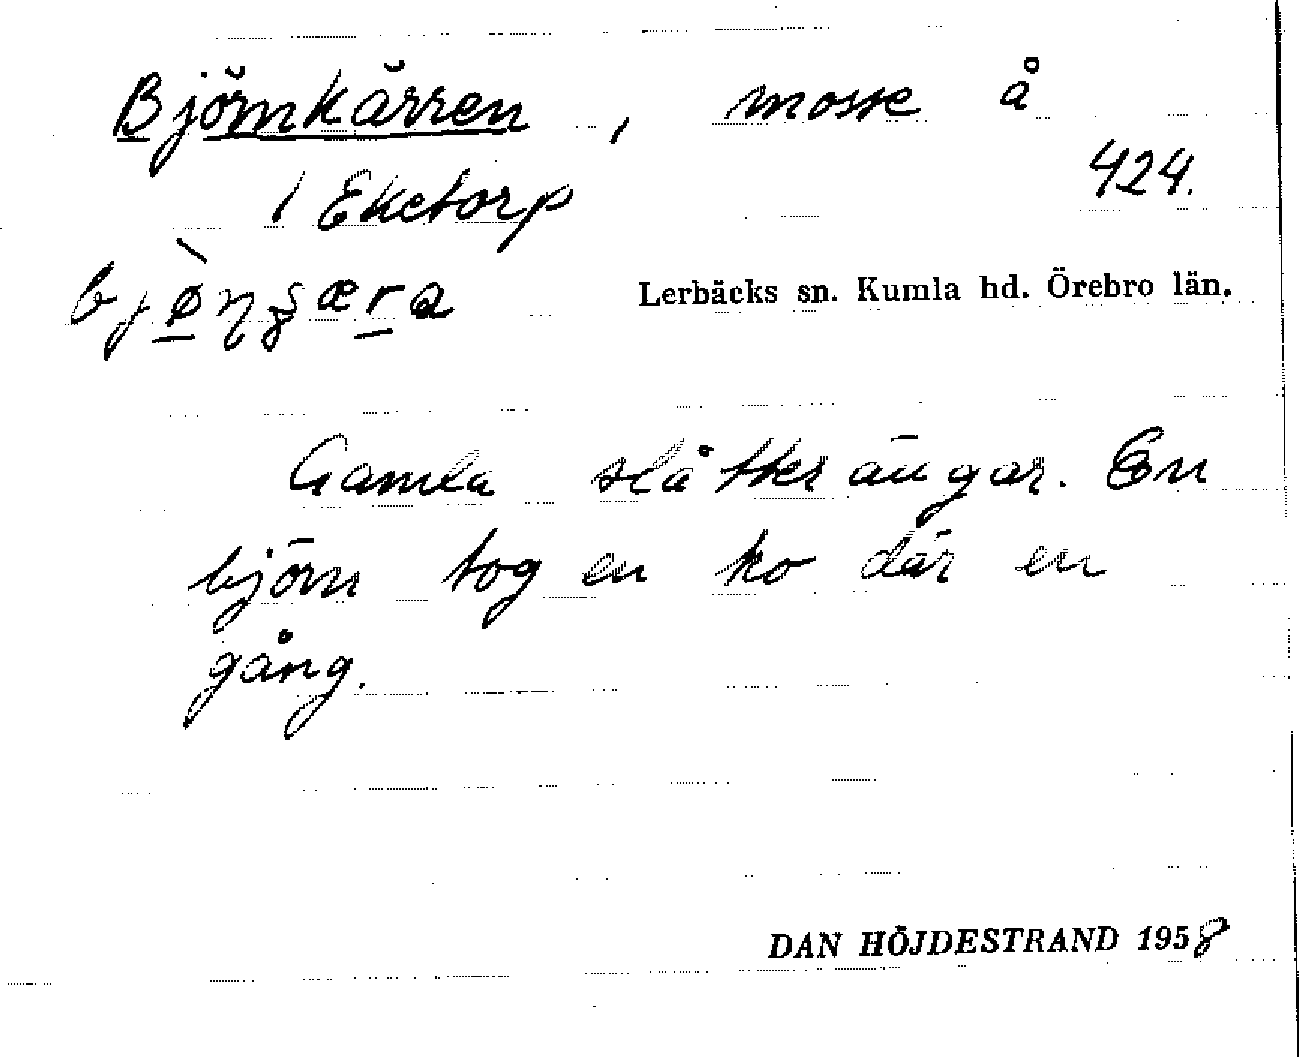 Björnkärren, mosse å
424.
1 Eketorp
bjø̀ŋʂæra
Lerbäcks sn. Kumla hd. Örebro län.
Gamla slåtterängar. En
björn tog en ko där en
gång.
DAN HÖJDESTRAND 1958